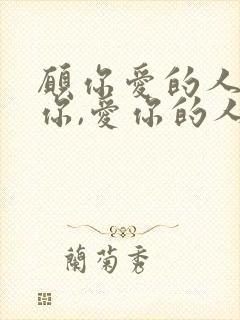 願你愛的人
你,愛你的人
蘭菊秀